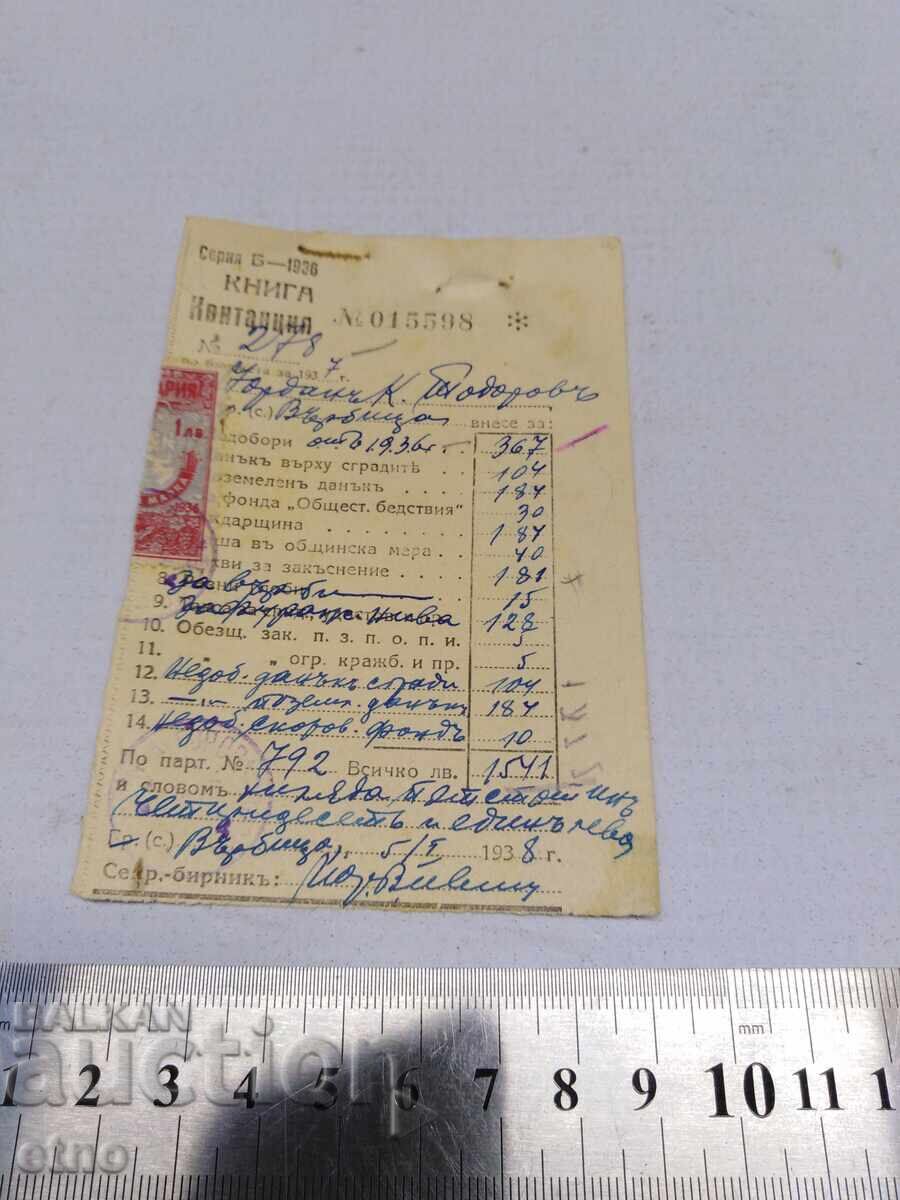 Серия Б—1936
КНИГА
Квитанция №015598 ✻
№ 278
за 1937 г.
Йорданъ К. Тодоровъ
(с.) Върбица внесе за:
добори отъ 1936 г. 367
анъкъ върху сградитѣ 104
оземеленъ данъкъ 187
фонда „Общест. бедствия" 30
ждарщина 187
аша въ общинска мера 40
хви за закъснение 181
8. за върби 15
9. нива 128
10. Обезщ. зак. п. з. п. о. п. и. 5
11. „ „ огр. кражб. и пр. 5
12. Недоб. данъкъ сгради 104
13. —„— поземл. данъкъ 187
14. недоб. скоров. фондъ 10
По парт. № 792 Всичко лв. 1541
и словомъ хиляда петстотинъ
четиридесетъ и единъ лева
Гр. (с.) Върбица, 5/I 1938 г.
Секр.-бирникъ:
АРИЯ
1 ЛВ.
1936
mm
1 2 3 4 5 6 7 8 9 10 11 1
BALKAN
auction
etno